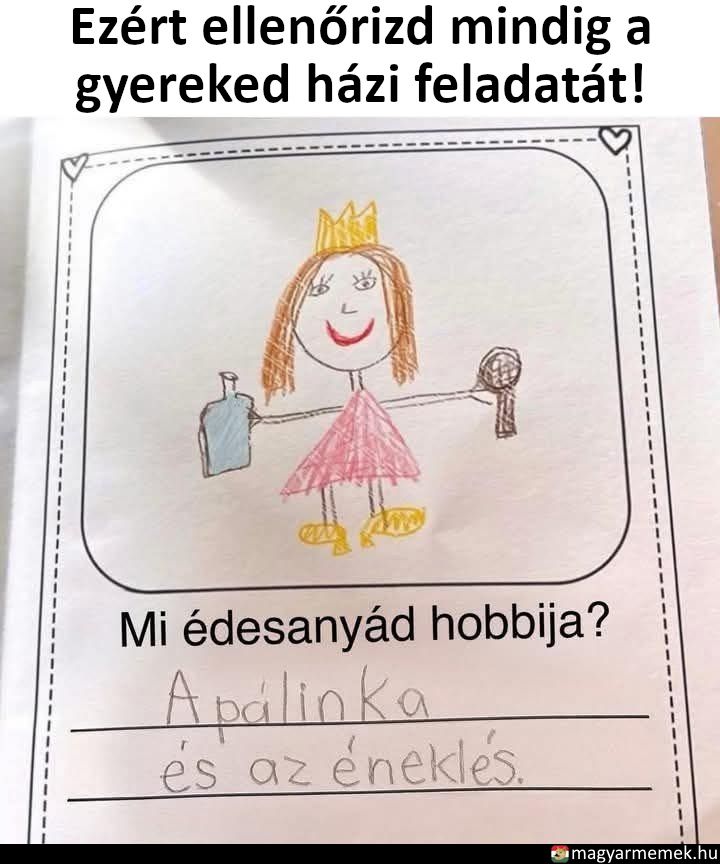 Ezért ellenőrizd mindig a
gyereked házi feladatát!
Mi édesanyád hobbija?
A pálinka
és az éneklés.
magyarmemek.hu